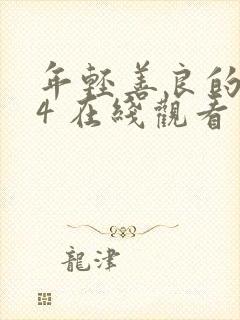 年輕善良的
4 在綫觀看
龍津